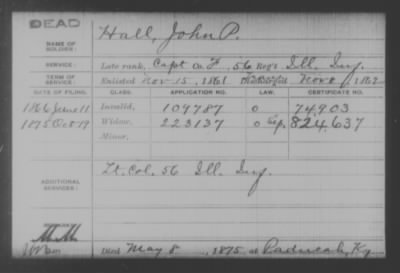 DEAD
NAME OF SOLDIER: Hall, John P.
SERVICE: Late rank, Capt Co. F, 56 Reg't Ill. Inf.
TERM OF SERVICE: Enlisted Nov 15, 1861 Nov 1862
DATE OF FILING. CLASS. APPLICATION NO. LAW. CERTIFICATE NO.
1866 June 11 Invalid, 109787 0 74,903
1875 Oct 19 Widow, 223137 0 824,637
Minor,
ADDITIONAL SERVICES: Lt. Col. 56 Ill. Inf.
Died May 8, 1875 at Paducah, Ky